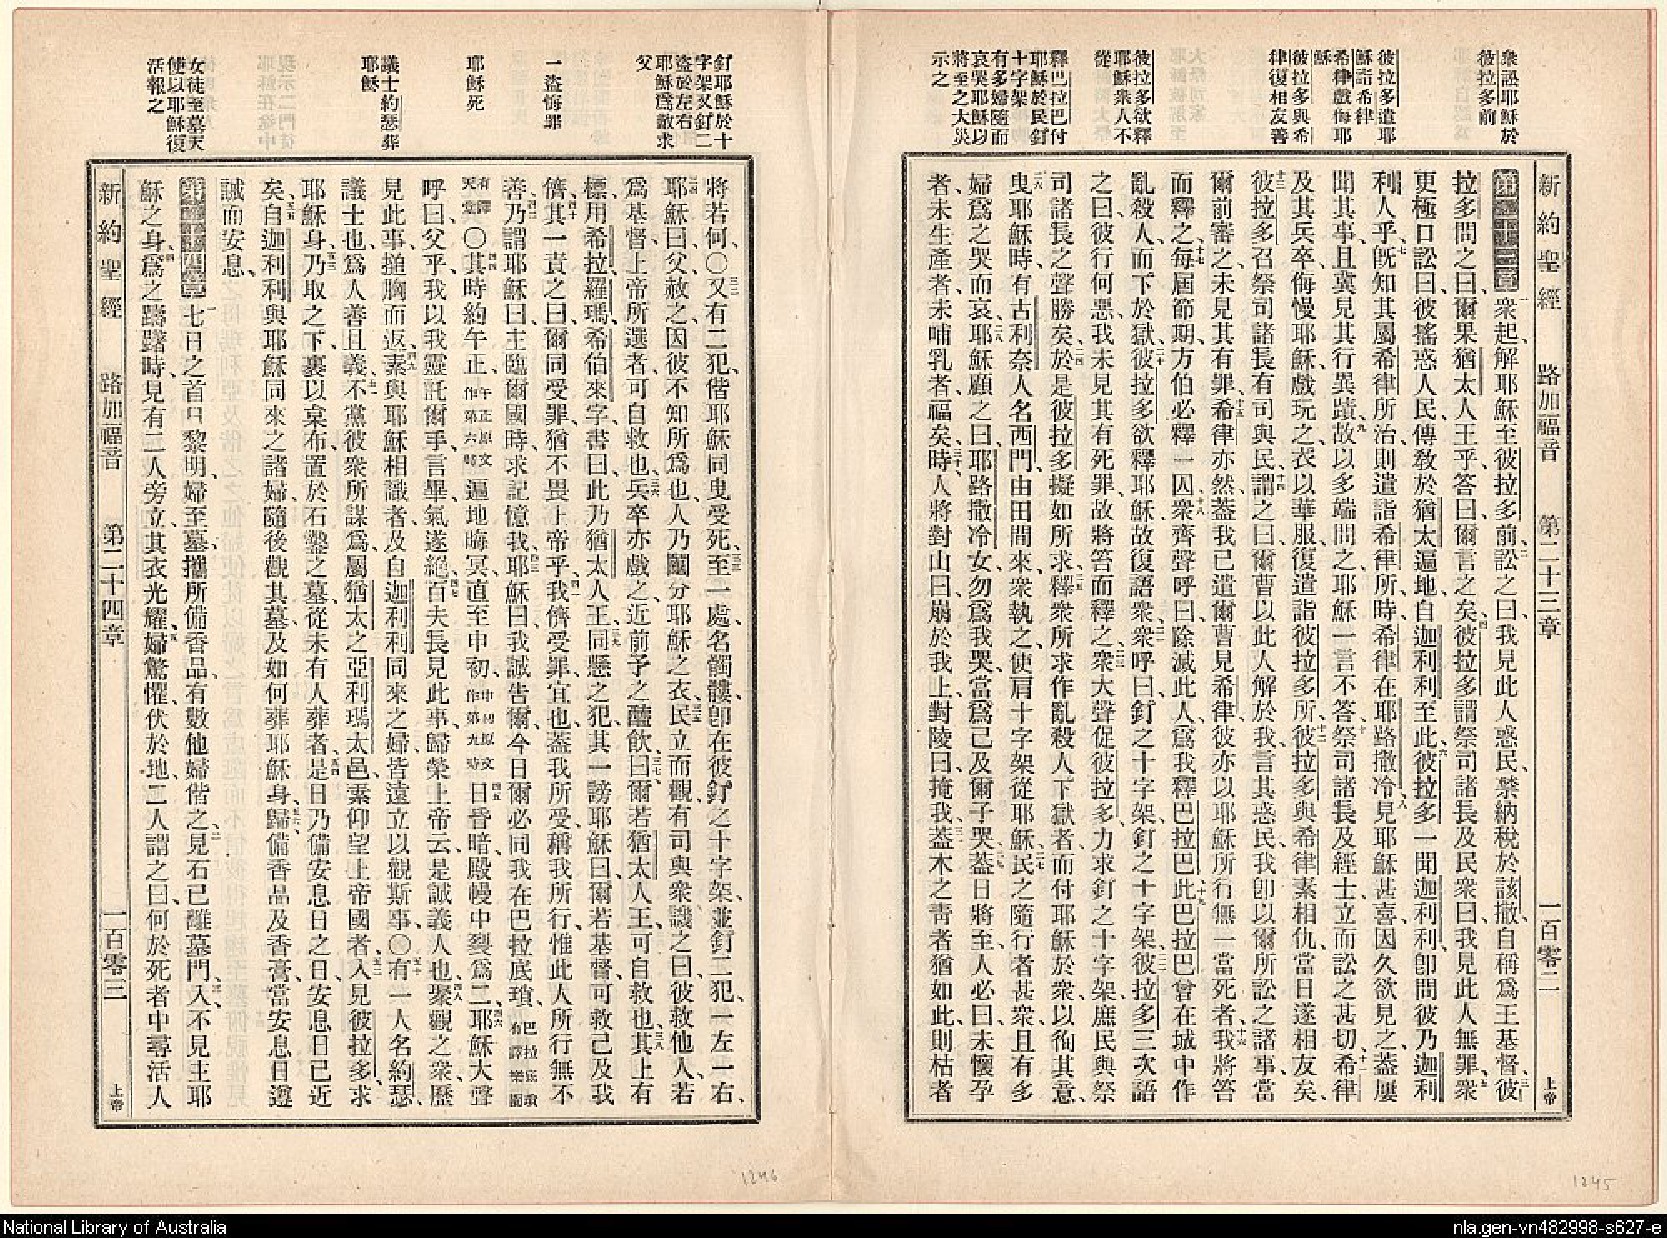 衆訟耶穌於
彼拉多前
彼拉多遣耶
穌詣希律
希律戲侮耶
穌
彼拉多與希
律復相友善
彼拉多欲釋
耶穌衆人不
從
釋巴拉巴付
耶穌於民釘
十字架
有多婦隨而
哀哭耶穌以
將至之大災
示之
新約聖經 路加福音 第二十三章 一百零二 上帝
第二十三章 衆起、解耶穌至彼拉多前、訟之曰、我見此人惑民、禁納稅於該撒、自稱爲王基督、彼
拉多問之曰、爾果猶太人王乎、答曰、爾言之矣、彼拉多謂祭司諸長及民衆曰、我見此人無罪、衆
更極口訟曰、彼搖惑人民、傳教於猶太遍地、自迦利利至此、彼拉多一聞迦利利、卽問彼乃迦利
利人乎、旣知其屬希律所治、則遣詣希律所、時希律在耶路撒冷、見耶穌甚喜、因久欲見之、蓋屢
聞其事、且冀見其行異蹟、故以多端問之、耶穌一言不答、祭司諸長及經士、立而訟之甚切、希律
及其兵卒侮慢耶穌、戲玩之、衣以華服、復遣詣彼拉多所、彼拉多與希律素相仇、當日遂相友矣、
彼拉多召祭司諸長、有司與民、謂之曰、爾曹以此人解於我、言其惑民、我卽以爾所訟之諸事、當
爾前審之、未見其有罪、希律亦然、蓋我已遣爾曹見希律、彼亦以耶穌所行、無一當死者、我將笞
而釋之、每屆節期、方伯必釋一囚、衆齊聲呼曰、除滅此人、爲我釋巴拉巴、此巴拉巴曾在城中作
亂殺人、而下於獄、彼拉多欲釋耶穌、故復語衆、衆呼曰、釘之十字架、釘之十字架、彼拉多三次語
之曰、彼行何惡、我未見其有死罪、故將笞而釋之、衆大聲促彼拉多、力求釘之十字架、庶民與祭
司諸長之聲勝矣、於是彼拉多擬如所求、釋衆所求作亂殺人下獄者、而付耶穌於衆、以徇其意、
曳耶穌時、有古利奈人名西門、由田間來、衆執之、使肩十字架從耶穌、民之隨行者甚衆、且有多
婦爲之哭而哀、耶穌顧之曰、耶路撒冷女、勿爲我哭、當爲己及爾子哭、蓋日將至、人必曰、未懷孕
者、未生產者、未哺乳者、福矣、時、人將對山曰、崩於我上、對陵曰、掩我、蓋木之靑者猶如此、則枯者
1245
釘耶穌於十
字架又釘二
盜於左右
耶穌爲敵求
父
一盜悔罪
耶穌死
議士約瑟葬
耶穌
女徒至墓天
使以耶穌復
活報之
將若何、〇又有二犯、偕耶穌同曳受死、至一處、名髑髏、卽在彼釘之十字架、並釘二犯、一左一右、
耶穌曰、父、赦之、因彼不知所爲也、人乃鬮分耶穌之衣、民立而觀、有司與衆譏之曰、彼救他人、若
爲基督、上帝所選者、可自救也、兵卒亦戲之、近前予之醯飮、曰、爾若猶太人王、可自救也、其上有
標、用希拉羅瑪希伯來字書曰、此乃猶太人王、同懸之犯、其一謗耶穌曰、爾若基督、可救己及我
儕、其一責之曰、爾同受罪、猶不畏上帝乎、我儕受罪、宜也、蓋我所受稱我所行、惟此人所行無不
善、乃謂耶穌曰、主臨爾國時、求記憶我、耶穌曰、我誠告爾、今日爾必同我在巴拉底瑣、巴拉底瑣有譯樂園
有譯天堂〇其時約午正、午正原文作第六時遍地晦冥、直至申初、申初原文作第九時日昏暗、殿幔中裂爲二、耶穌大聲
呼曰、父乎、我以我靈託爾手、言畢、氣遂絕、百夫長見此事、歸榮上帝云、是誠義人也、聚觀之衆、歷
見此事、搥胸而返、素與耶穌相識者、及自迦利利同來之婦、皆遠立以觀斯事、〇有一人名約瑟、
議士也、爲人善且義、不黨彼衆所謀、爲屬猶太之亞利瑪太邑、素仰望上帝國者、入見彼拉多、求
耶穌身、乃取之下、裹以枲布、置於石鑿之墓、從未有人葬者、是日乃備安息日之日、安息日已近
矣、自迦利利與耶穌同來之諸婦、隨後觀其墓、及如何葬耶穌身、歸備香品及香膏、當安息日、遵
誡而安息、
第二十四章 七日之首日、黎明、婦至墓、攜所備香品、有數他婦偕之、見石已離墓門、入、不見主耶
穌之身、爲之躊躇時、見有二人旁立、其衣光耀、婦驚懼伏於地、二人謂之曰、何於死者中尋活人
新約聖經 路加福音 第二十四章 一百零三 上帝
1246
National Library of Australia
nla.gen-vn482998-s627-e